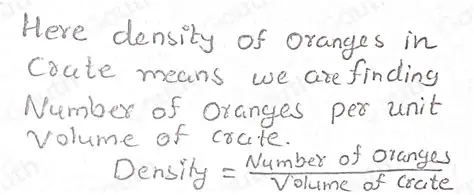 Here density of oranges in
Crate means we are finding
Number of Oranges per unit
Volume of crate.
Density = Number of oranges / Volume of crate